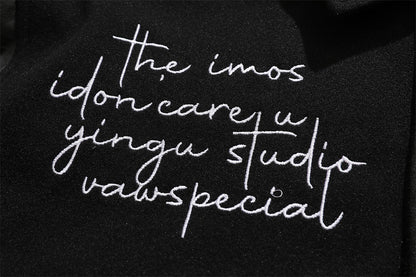 the imos
idon care u
yingu studio
vawspecial